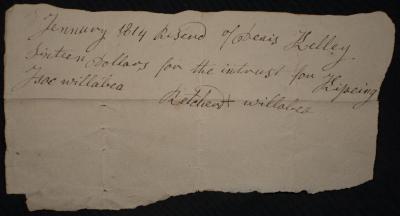 Jennury 1814 Reserd of Deais Kelley
Sixteen Dollars for the intrust for Kipeing
Isoc willabea
Retcherd willabea